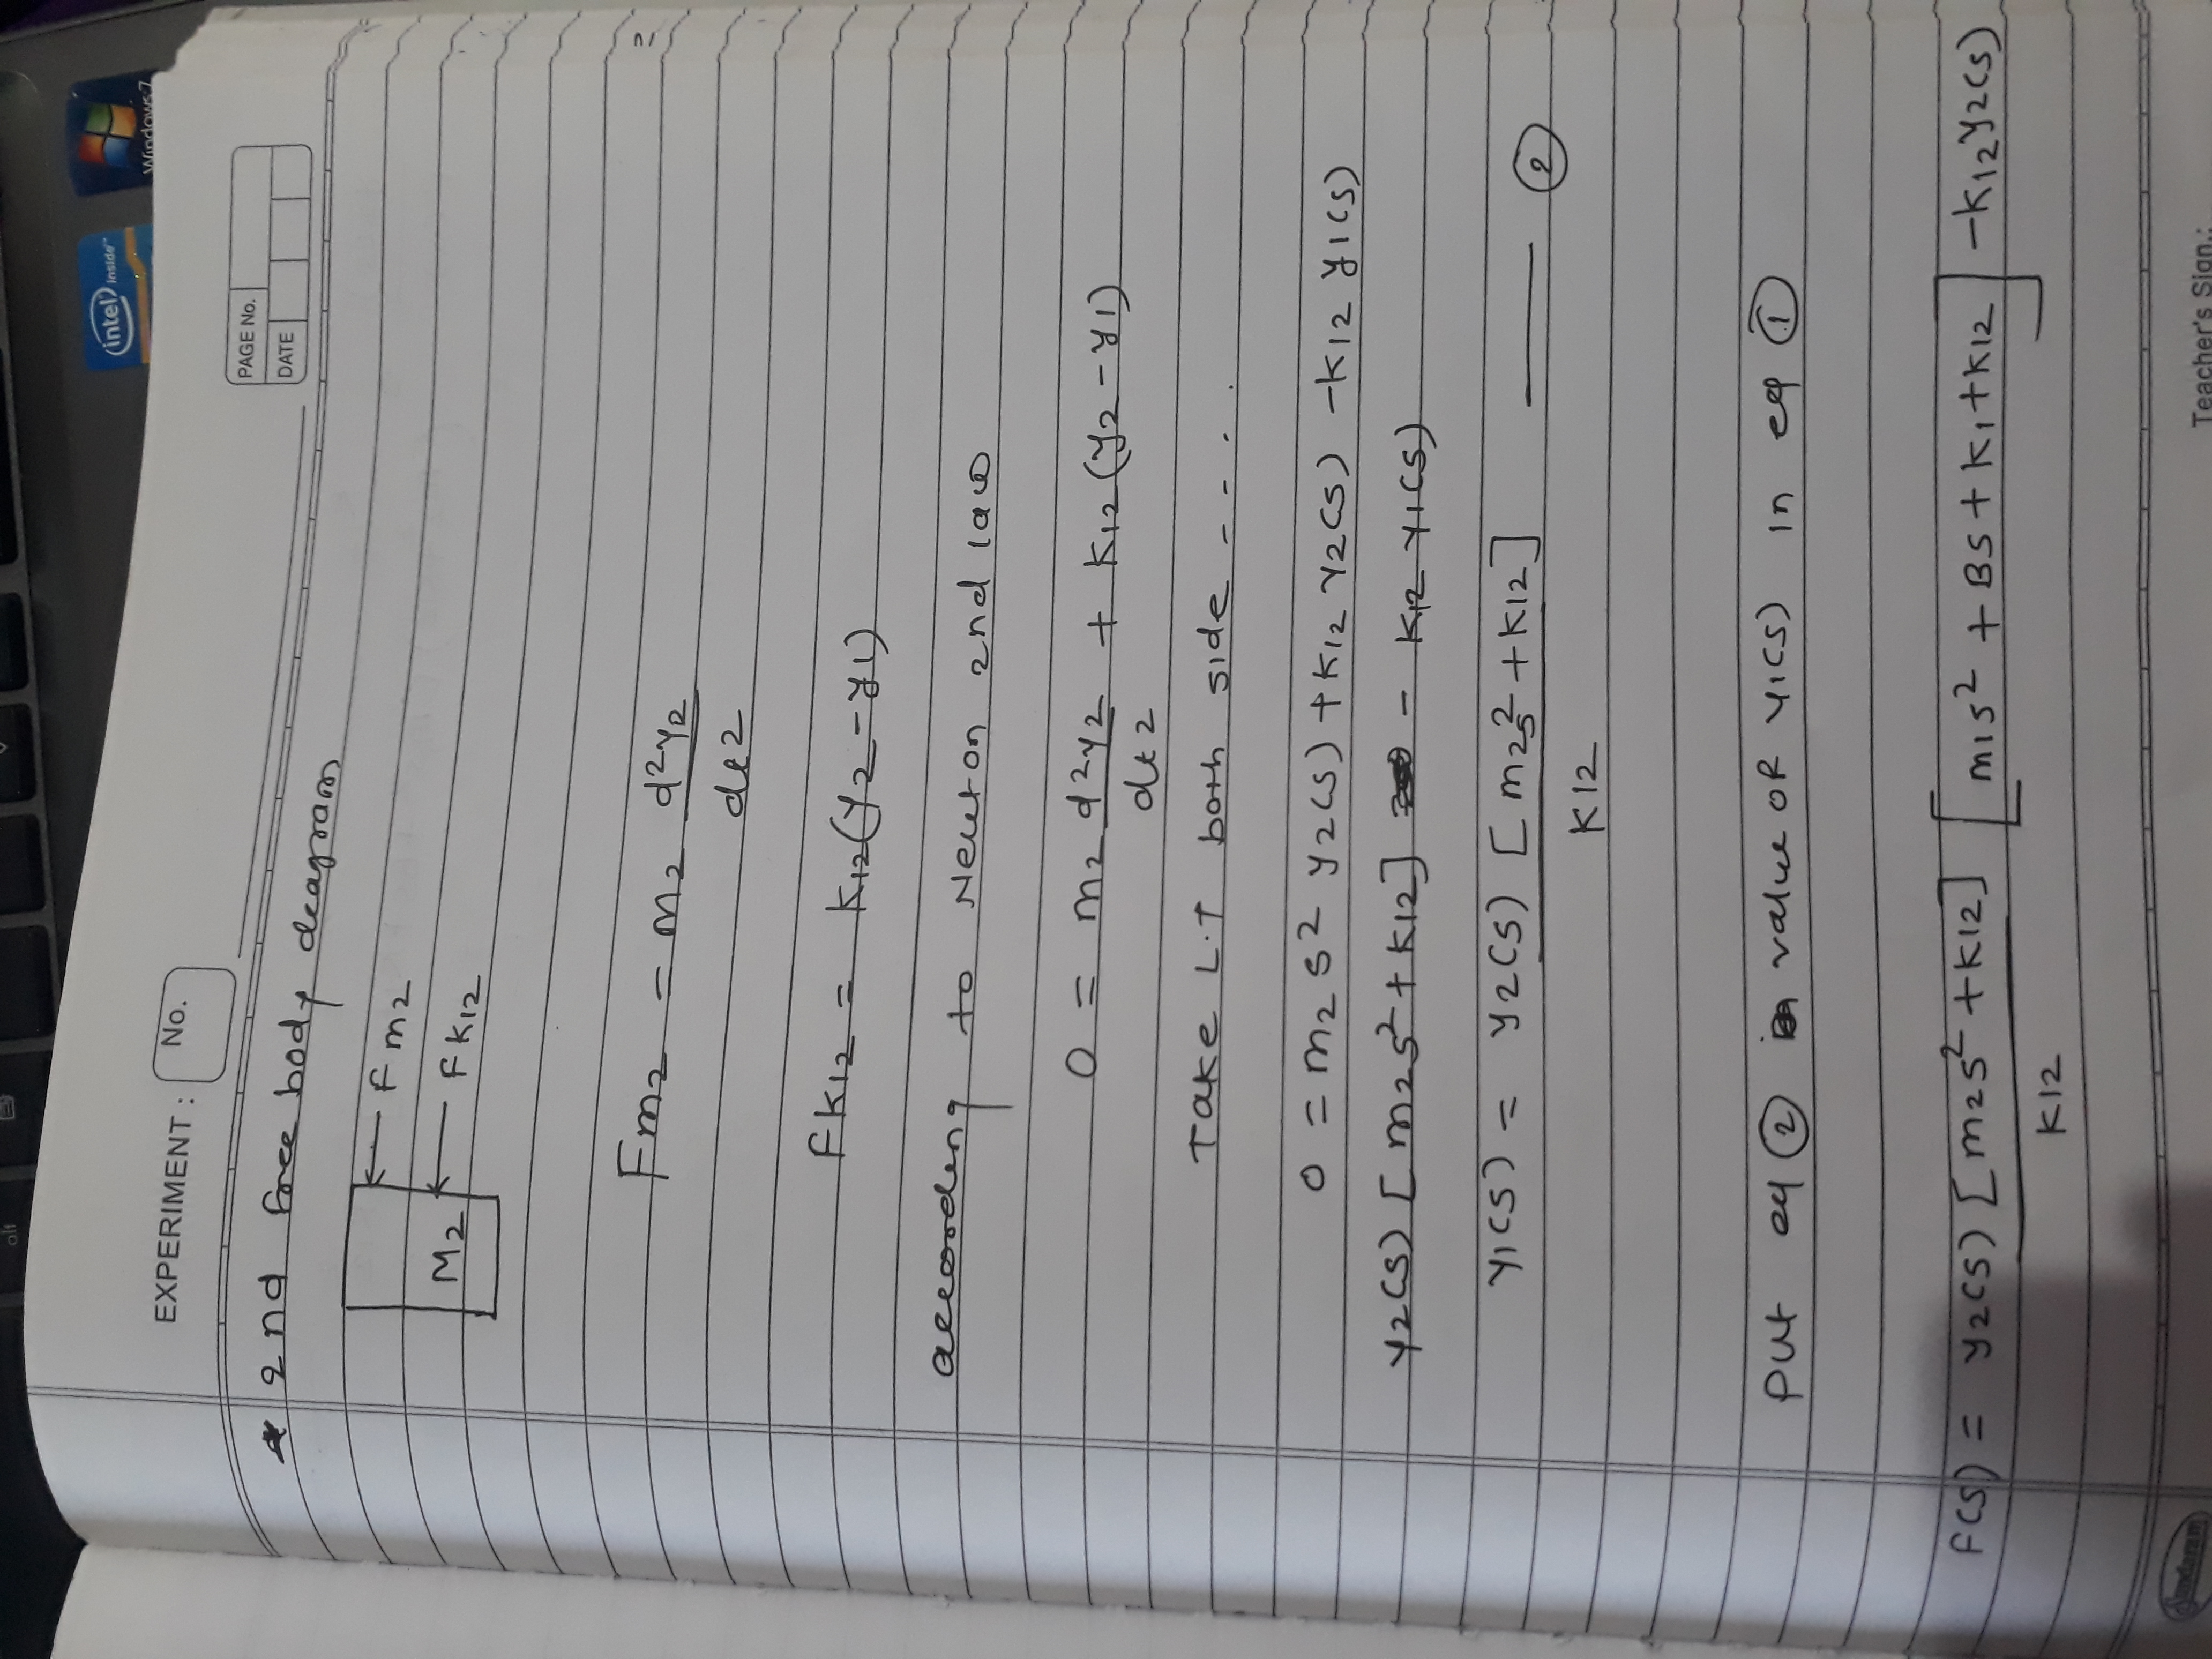 alt
intel inside™
Windows 7
EXPERIMENT : No.
PAGE No.
DATE
2nd free body deagram
Fm2
M2
FK12
Fm2 = m2 d²y2
dt2
FK12 = K12(y2-y1)
according to Newton 2nd law
0 = m2 d²y2 + K12(y2-y1)
dt2
Take L.T both side - - . .
0 = m2 s² y2(s) + K12 Y2(s) - K12 y1(s)
y2(s) [m2s² + K12] - K12 y1(s)
y1(s) = y2(s) [m2s² + K12] —— ②
K12
put eq ② value of y1(s) in eq ①
F(s) = y2(s) [m2s² + K12] [m1s² + Bs + K1 + K12] - K12y2(s)
K12
Sundaram
Teacher's Sign.: